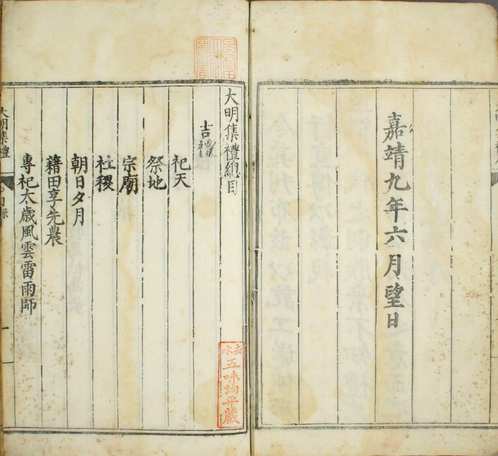 嘉靖九年六月望日
大明集禮總目
吉禮
祀天
祭地
宗廟
社稷
朝日夕月
籍田享先農
專祀太歲風雲雷雨師
大明集禮